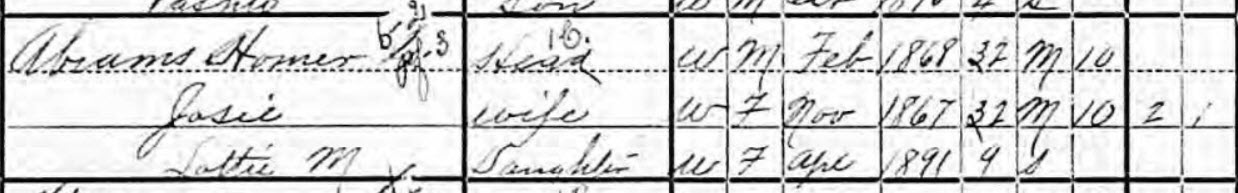 Son W M 4 S
Abrams Homer Head W M Feb 1868 32 M 10
Josie Wife W F Nov 1867 32 M 10 2 1
Lottie M Daughter W F Apr 1891 9 S